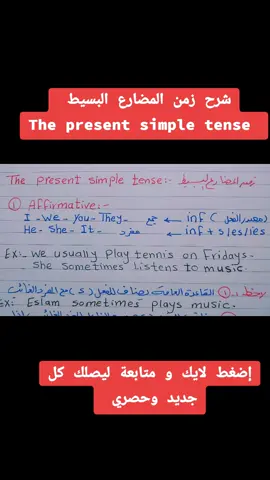 شرح زمن المضارع البسيط
The present simple tense
The present simple tense:- زمن المضارع البسيط
① Affirmative:-
I - we - you - They - جمع ← inf (مصدر الفعل)
He - She - It - مفرد ← inf + s/es/ies
Ex:- we usually play tennis on Fridays.
She sometimes listens to music.
القاعدة العامة يضاف للفعل (s) مع المفرد الغائب
Ex: Eslam sometimes plays music.
إضغط لايك و متابعة ليصلك كل
جديد وحصري